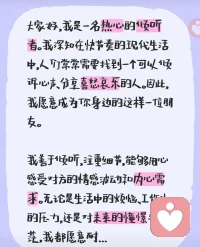 大家好，我是一名热心的倾听
者。我深知在快节奏的现代生活
中，人们常常需要找到一个可以倾
诉心声，分享喜怒哀乐的人。因此，
我愿意成为你身边的这样一位朋
友。
我善于倾听，注重细节，能够用心
感受对方的情感波动和内心需
求。无论是生活中的烦恼、工作
的压力，还是对未来的憧憬
我都愿意耐...